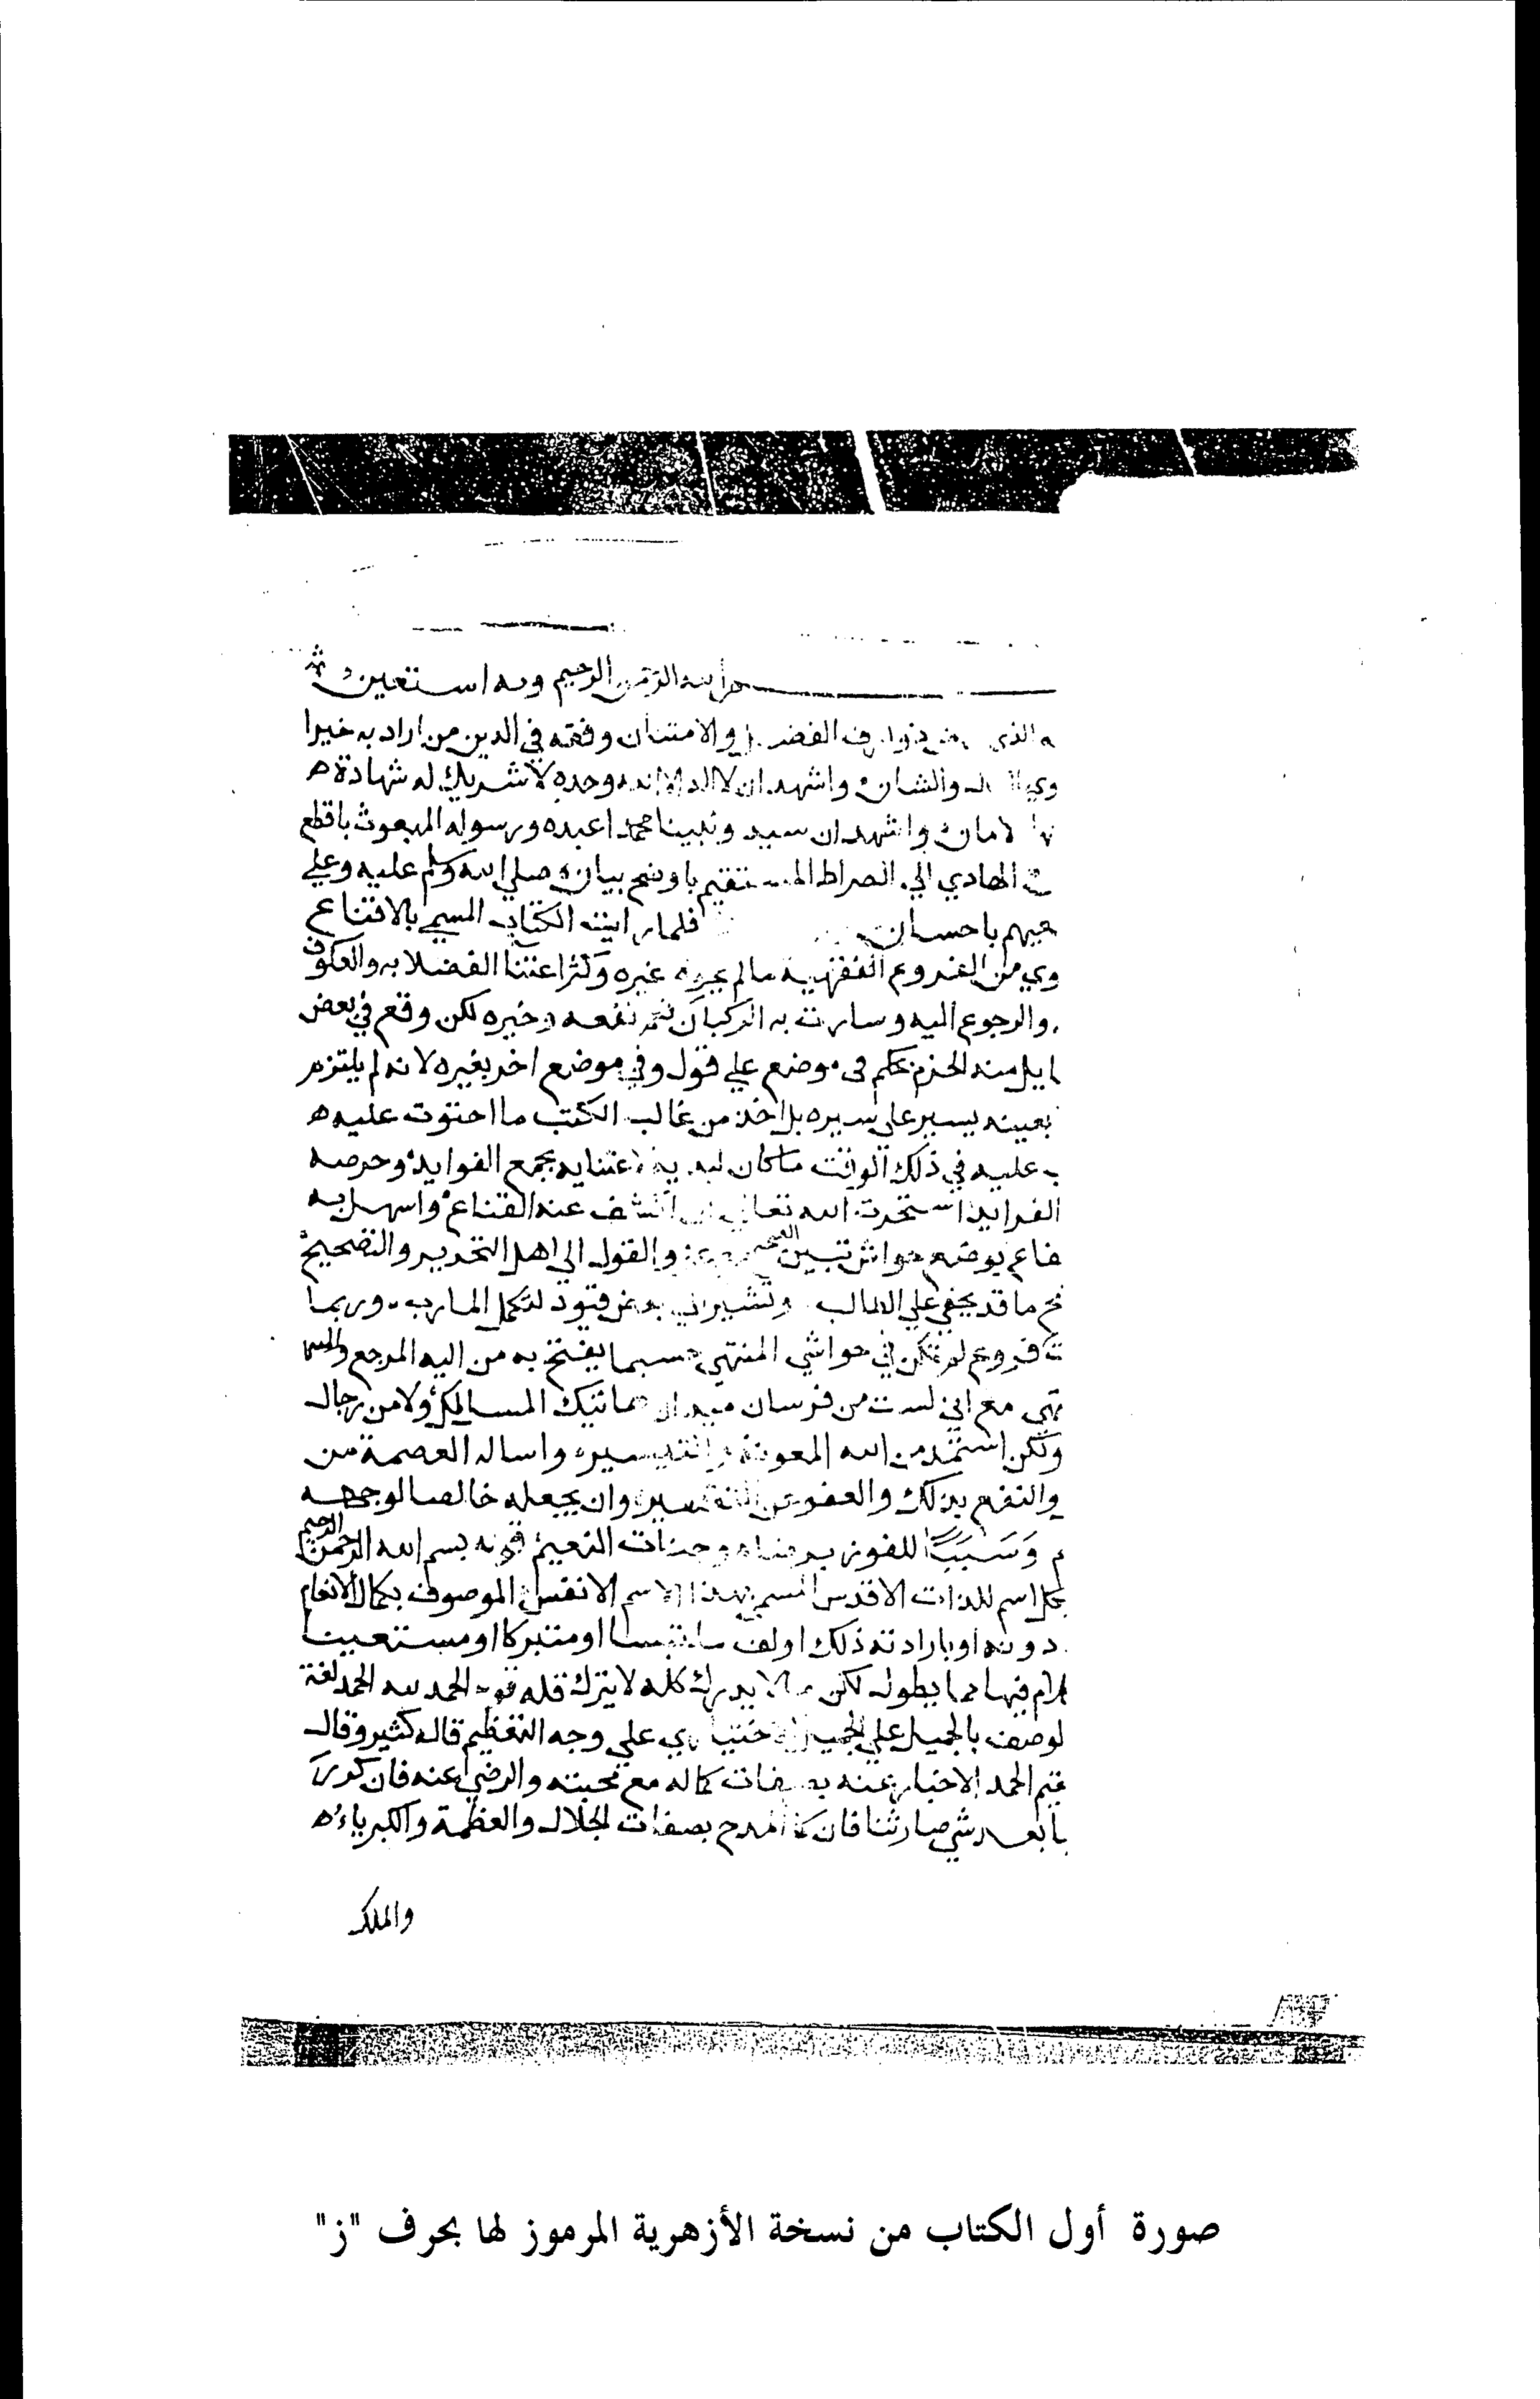 الله الرحمن الرحيم وبه استعين
الذي والامتنان وفقه في الدين من اراد به خيرا
والشان واشهد ان لا اله الا الله وحده لا شريك له شهادة
واشهد ان سيد ونبينا محمدا عبده ورسوله المبعوث باقطع
الهادي الي الصراط المستقيم باوضح بيان صلي الله وسلم عليه وعلي
باحسان فلما رايت الكتاب المسمي بالاقناع
من الفروع الفقهية ما لم يحوه غيره وكثر اعتنا الفضلا به والعكوف
والرجوع اليه وسارت به الركبان نفعه وخيره لكن وقع في بعض
منه الجزم بحكم في موضع علي قول وفي موضع اخر بغيره لانه لم يلتزم
بعينه يسير علي سيره بل اخذ من غالب الكتب ما احتوت عليه
عليه في ذلك الوقت اعتنايه بجمع الفوايد وحرصه
الفرايد استخرت الله تعالي اكشف عنه القناع واسهل به
بوضع حواش تبين والقول الي اهل التحرير والتصحيح
ما قد يخفي علي الطالب وتشير الي بعض قيود لتكمل المارب وربما
فروع لم تكن في حواشي المنتهي حسبما يفتح به من اليه المرجع
مع اني لست من فرسان ميدان هاتيك المسالك ولا من رجال
ولكن استمد من الله المعونة والتيسير واساله العصمة من
والنفع بذلك والعفو عن التقصير وان يجعله خالصا لوجهه
وَسَبَبًا للفوز برضاه وجنات النعيم قوله بسم الله الرحمن الرحيم
اسم للذات الاقدس المسمي بهذا الاسم الانفس الموصوف بكمال الانعام
او بارادته ذلك اولف ملتبسا او متبركا او مستعينا
فيها مما يطول لكن ما لا يدرك كله لا يترك قله قوله الحمد لله الحمد لغة
الوصف بالجميل علي الجميل الاختياري علي وجه التعظيم قاله كثير وقال
الحمد الاخبار عنه بصفات كماله مع محبته والرضي عنه فان كرر
شي صار ثنا فان كان المدح بصفات الجلال والعظمة والكبرياء
والملك
صورة أول الكتاب من نسخة الأزهرية المرموز لها بحرف "ز"